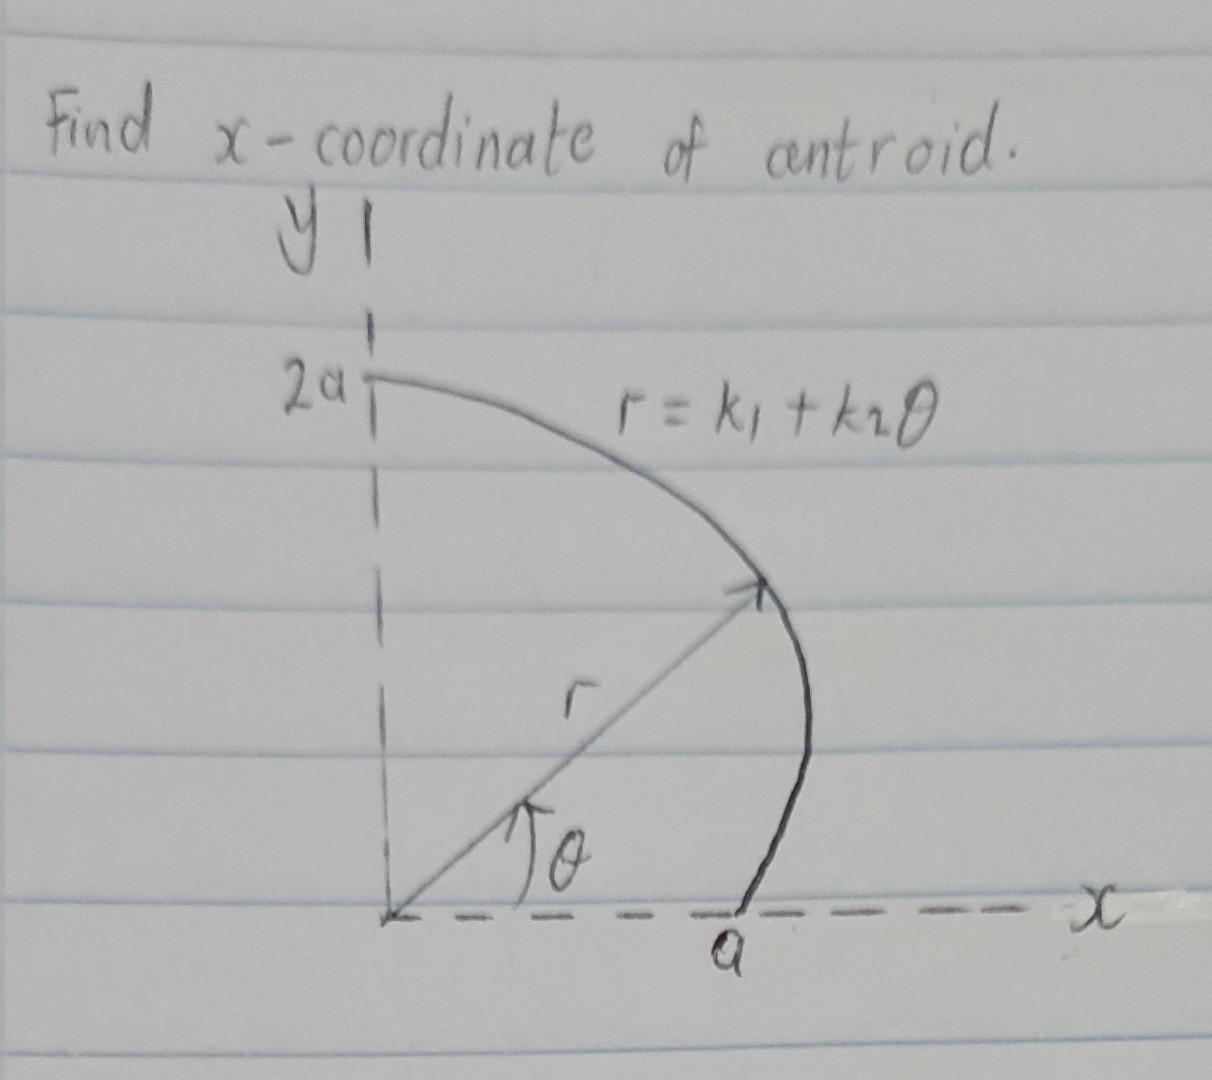 Find x-coordinate of centroid.
y
2a
r = k₁ + k₂θ
r
θ
x
a